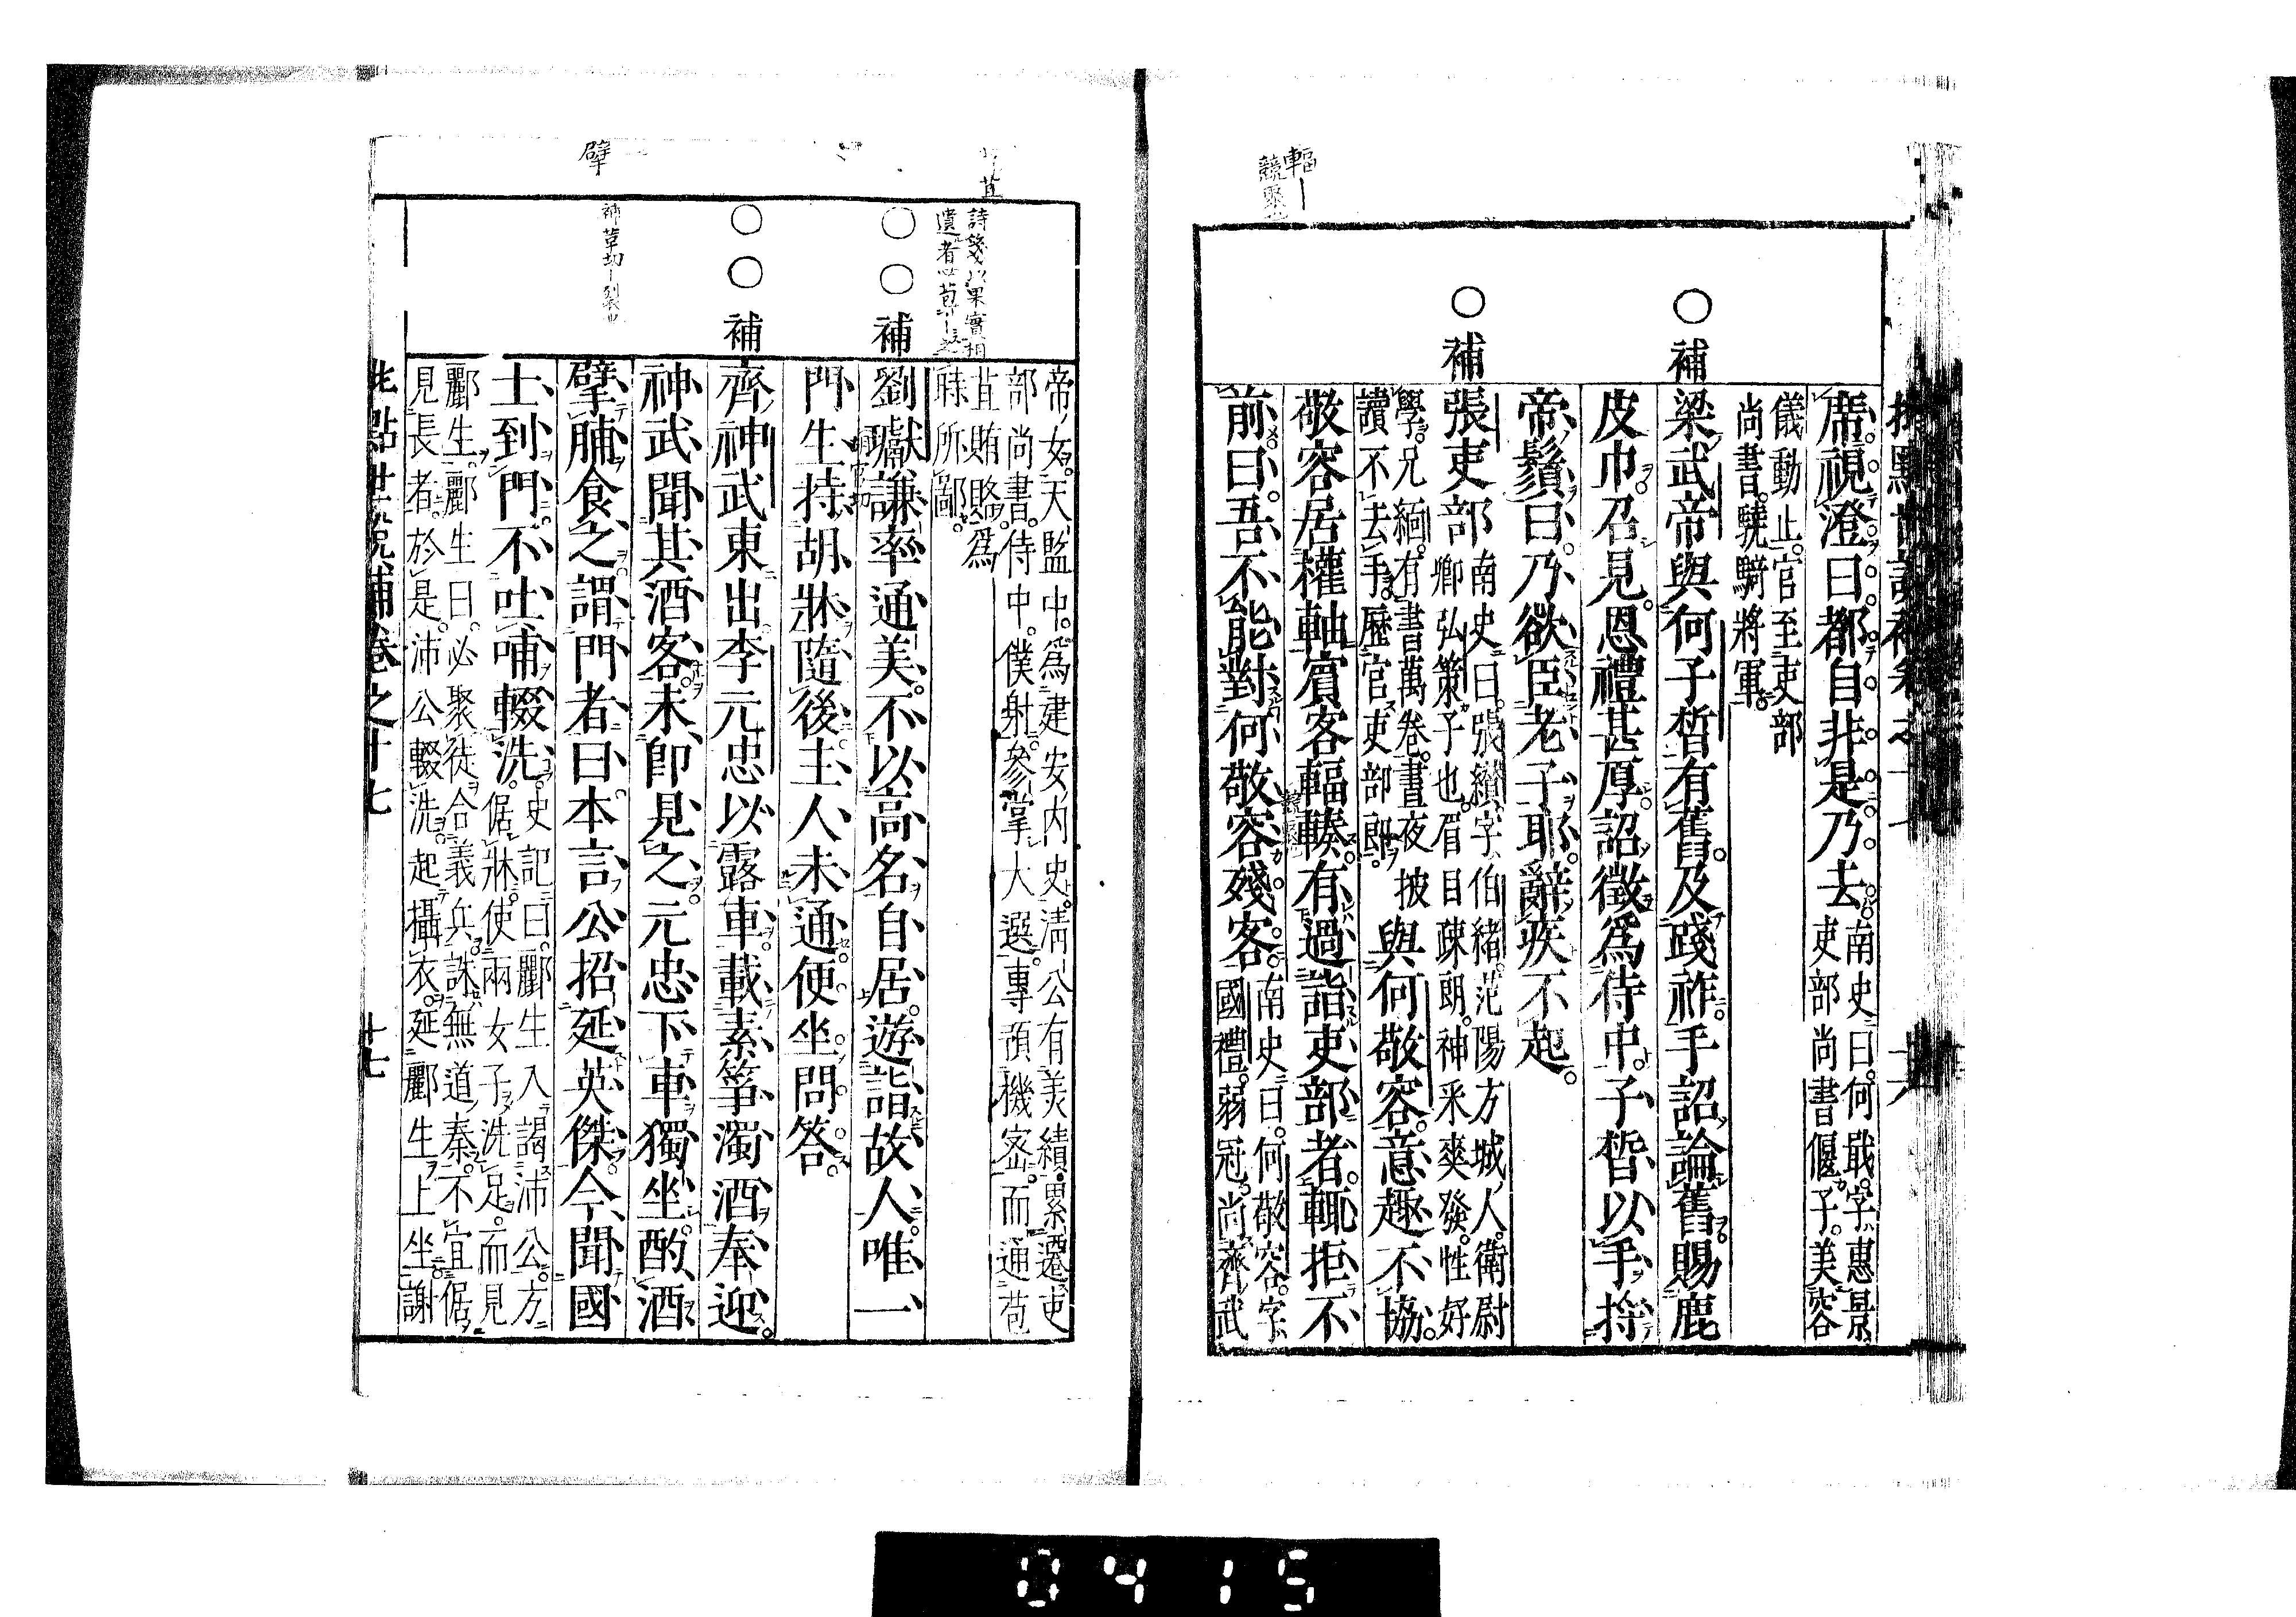 輻
競聚
席視澄曰都自非是乃去
南史曰何戢字惠景
吏部尚書偃子美容
儀動止官至吏部
尚書驍騎將軍
○補
梁武帝與何子晳有舊及踐祚手詔論舊賜鹿
皮巾召見恩禮甚厚詔徵爲侍中子晳以手捋
帝鬚曰乃欲臣老子耶辭疾不起
○補
張吏部
南史曰張纘字伯緒范陽方城人衛尉
卿弘策子也眉目疎朗神采爽發性好
學兄緬有書萬卷晝夜披
讀不去手歷官吏部郎
與何敬容意趣不協
敬容居權軸賓客輻輳有過詣吏部者輒拒不
前曰吾不能對何敬容殘客
南史曰何敬容字
國禮弱冠尚齊武
苴
詩箋以果實相
遺者必苞苴之
帝女天監中爲建安内史清公有美績累遷吏
部尚書侍中僕射參掌大選專預機密而通苞
苴賄賂爲
時所鄙
○○補
劉瓛謙率通美不以高名自居遊詣故人唯一
門生持胡牀隨後主人未通便坐問答
○○補
齊神武東出李元忠以露車載素箏濁酒奉迎
神武聞其酒客未即見之元忠下車獨坐酌酒
擘
擘脯食之謂門者曰本言公招延英傑今聞國
士到門不吐哺輟洗
史記曰酈生入謁沛公方
倨牀使兩女子洗足而見
酈生酈生曰必聚徒合義兵誅無道秦不宜倨
見長者於是沛公輟洗起攝衣延酈生上坐謝
批點世說補卷之十七
十七
0415